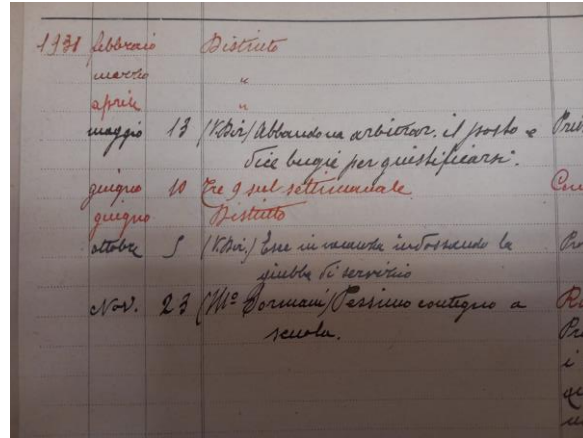 1931 febbraio Distinto
marzo "
aprile "
maggio 13 (V.Dir) Abbandona arbitrar. il posto e
dice bugie per giustificarsi.
giugno 10 Tre 9 sul settimanale
giugno Distinto
ottobre 5 (V.Dir.) Esce in vacanza indossando la
giubba di servizio
Nov. 23 (Mº Dormani) Pessimo contegno a
scuola.